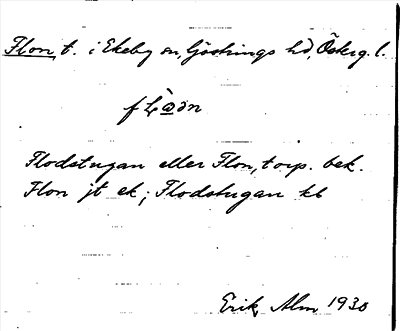 Flon, t. i Ekeby sn, Göstrings hd, Österg. l.
Flodstugan eller Flon, torp. bek.
Flon jt ek; Flodstugan kb
Erik Alm 1930